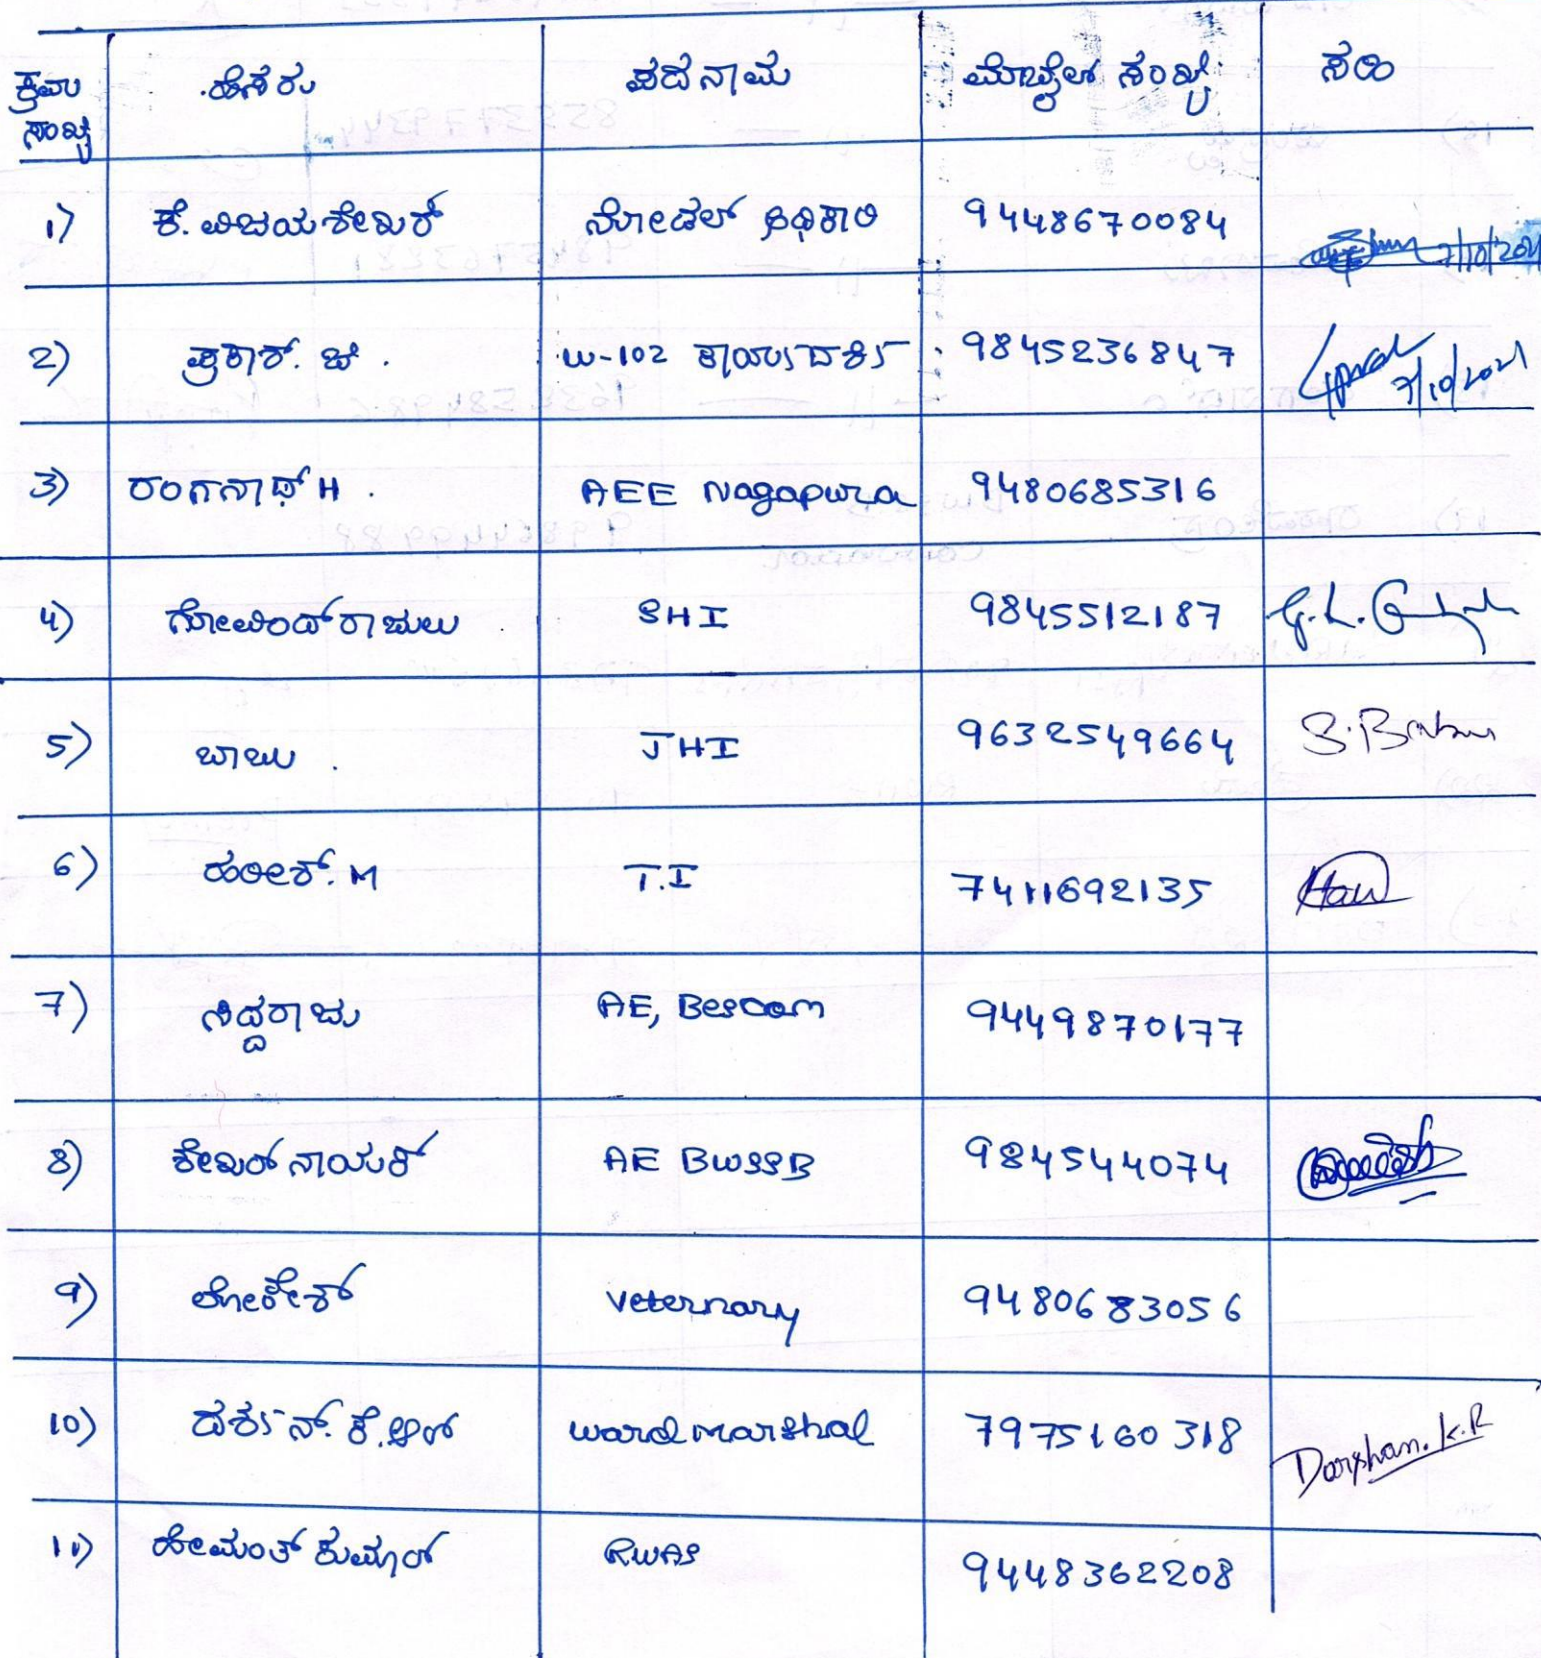 ಕ್ರಮ ಸಂಖ್ಯೆ ಹೆಸರು ಪದನಾಮ ಮೊಬೈಲ್ ಸಂಖ್ಯೆ ಸಹಿ
1) ಕೆ. ವಿಜಯಶೇಖರ್ ನೋಡಲ್ ಅಧಿಕಾರಿ 9448670084 7/10/2021
2) ಪ್ರಕಾಶ್. ಜೆ. W-102 ಕಾರ್ಯದರ್ಶಿ 9845236847 7/10/2021
3) ರಂಗನಾಥ್ H. AEE Nagapura 9480685316
4) ಗೋವಿಂದ್ ರಾಜುಲು SHI 9845512187 G.L.
5) ಬಾಬು. JHI 9632549664 S. Babu
6) ಹರೀಶ್. M T.I 7411692135
7) ಸಿದ್ದರಾಜು AE, Bescom 9449870177
8) ಶೇಖರ್ ನಾಯಕ್ AE BWSSB 984544074
9) ಲೋಕೇಶ್ veternary 9480683056
10) ದರ್ಶನ್. ಕೆ. ಆರ್ ward marshal 7975160318 Darshan. K.R
11) ಹೇಮಂತ್ ಕುಮಾರ್ RWAS 9448362208